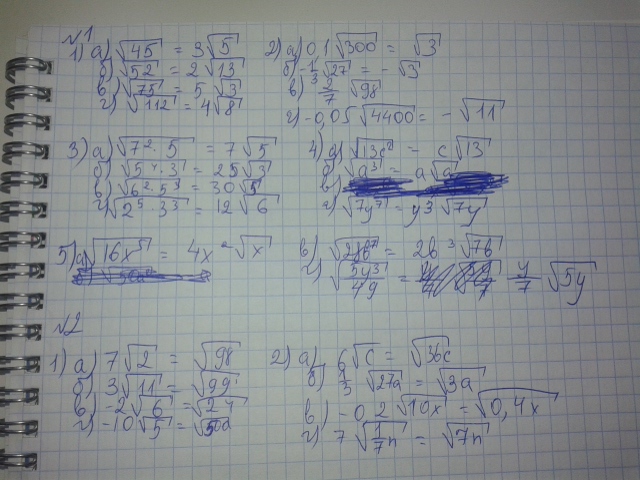 №1
1) а) √45 = 3√5
б) √52 = 2√13
в) √75 = 5√3
г) √112 = 4√8
2) а) 0,1√300 = √3
б) -1/3√27 = -√3
в) 2/7 √98
г) -0,05√4400 = -√11
3) а) √7²·5 = 7√5
б) √5⁴·3 = 25√3
в) √6²·5³ = 30√5
г) √2⁵·3³ = 12√6
4) а) √13c² = c√13
б) √a³ = a√a
г) √7y⁷ = y³√7y
5) а) √16x⁵ = 4x²√x
в) = 2b³√7b
г) √5y³/49 = y/7 √5y
№2
1) а) 7√2 = √98
б) 3√11 = √99
в) -2√6 = √24
г) -10√5 = √500
2) а) 6√c = √36c
б) √27a = √3a
в) -0,2√10x = √0,4x
г) 7√1/7n = √7n